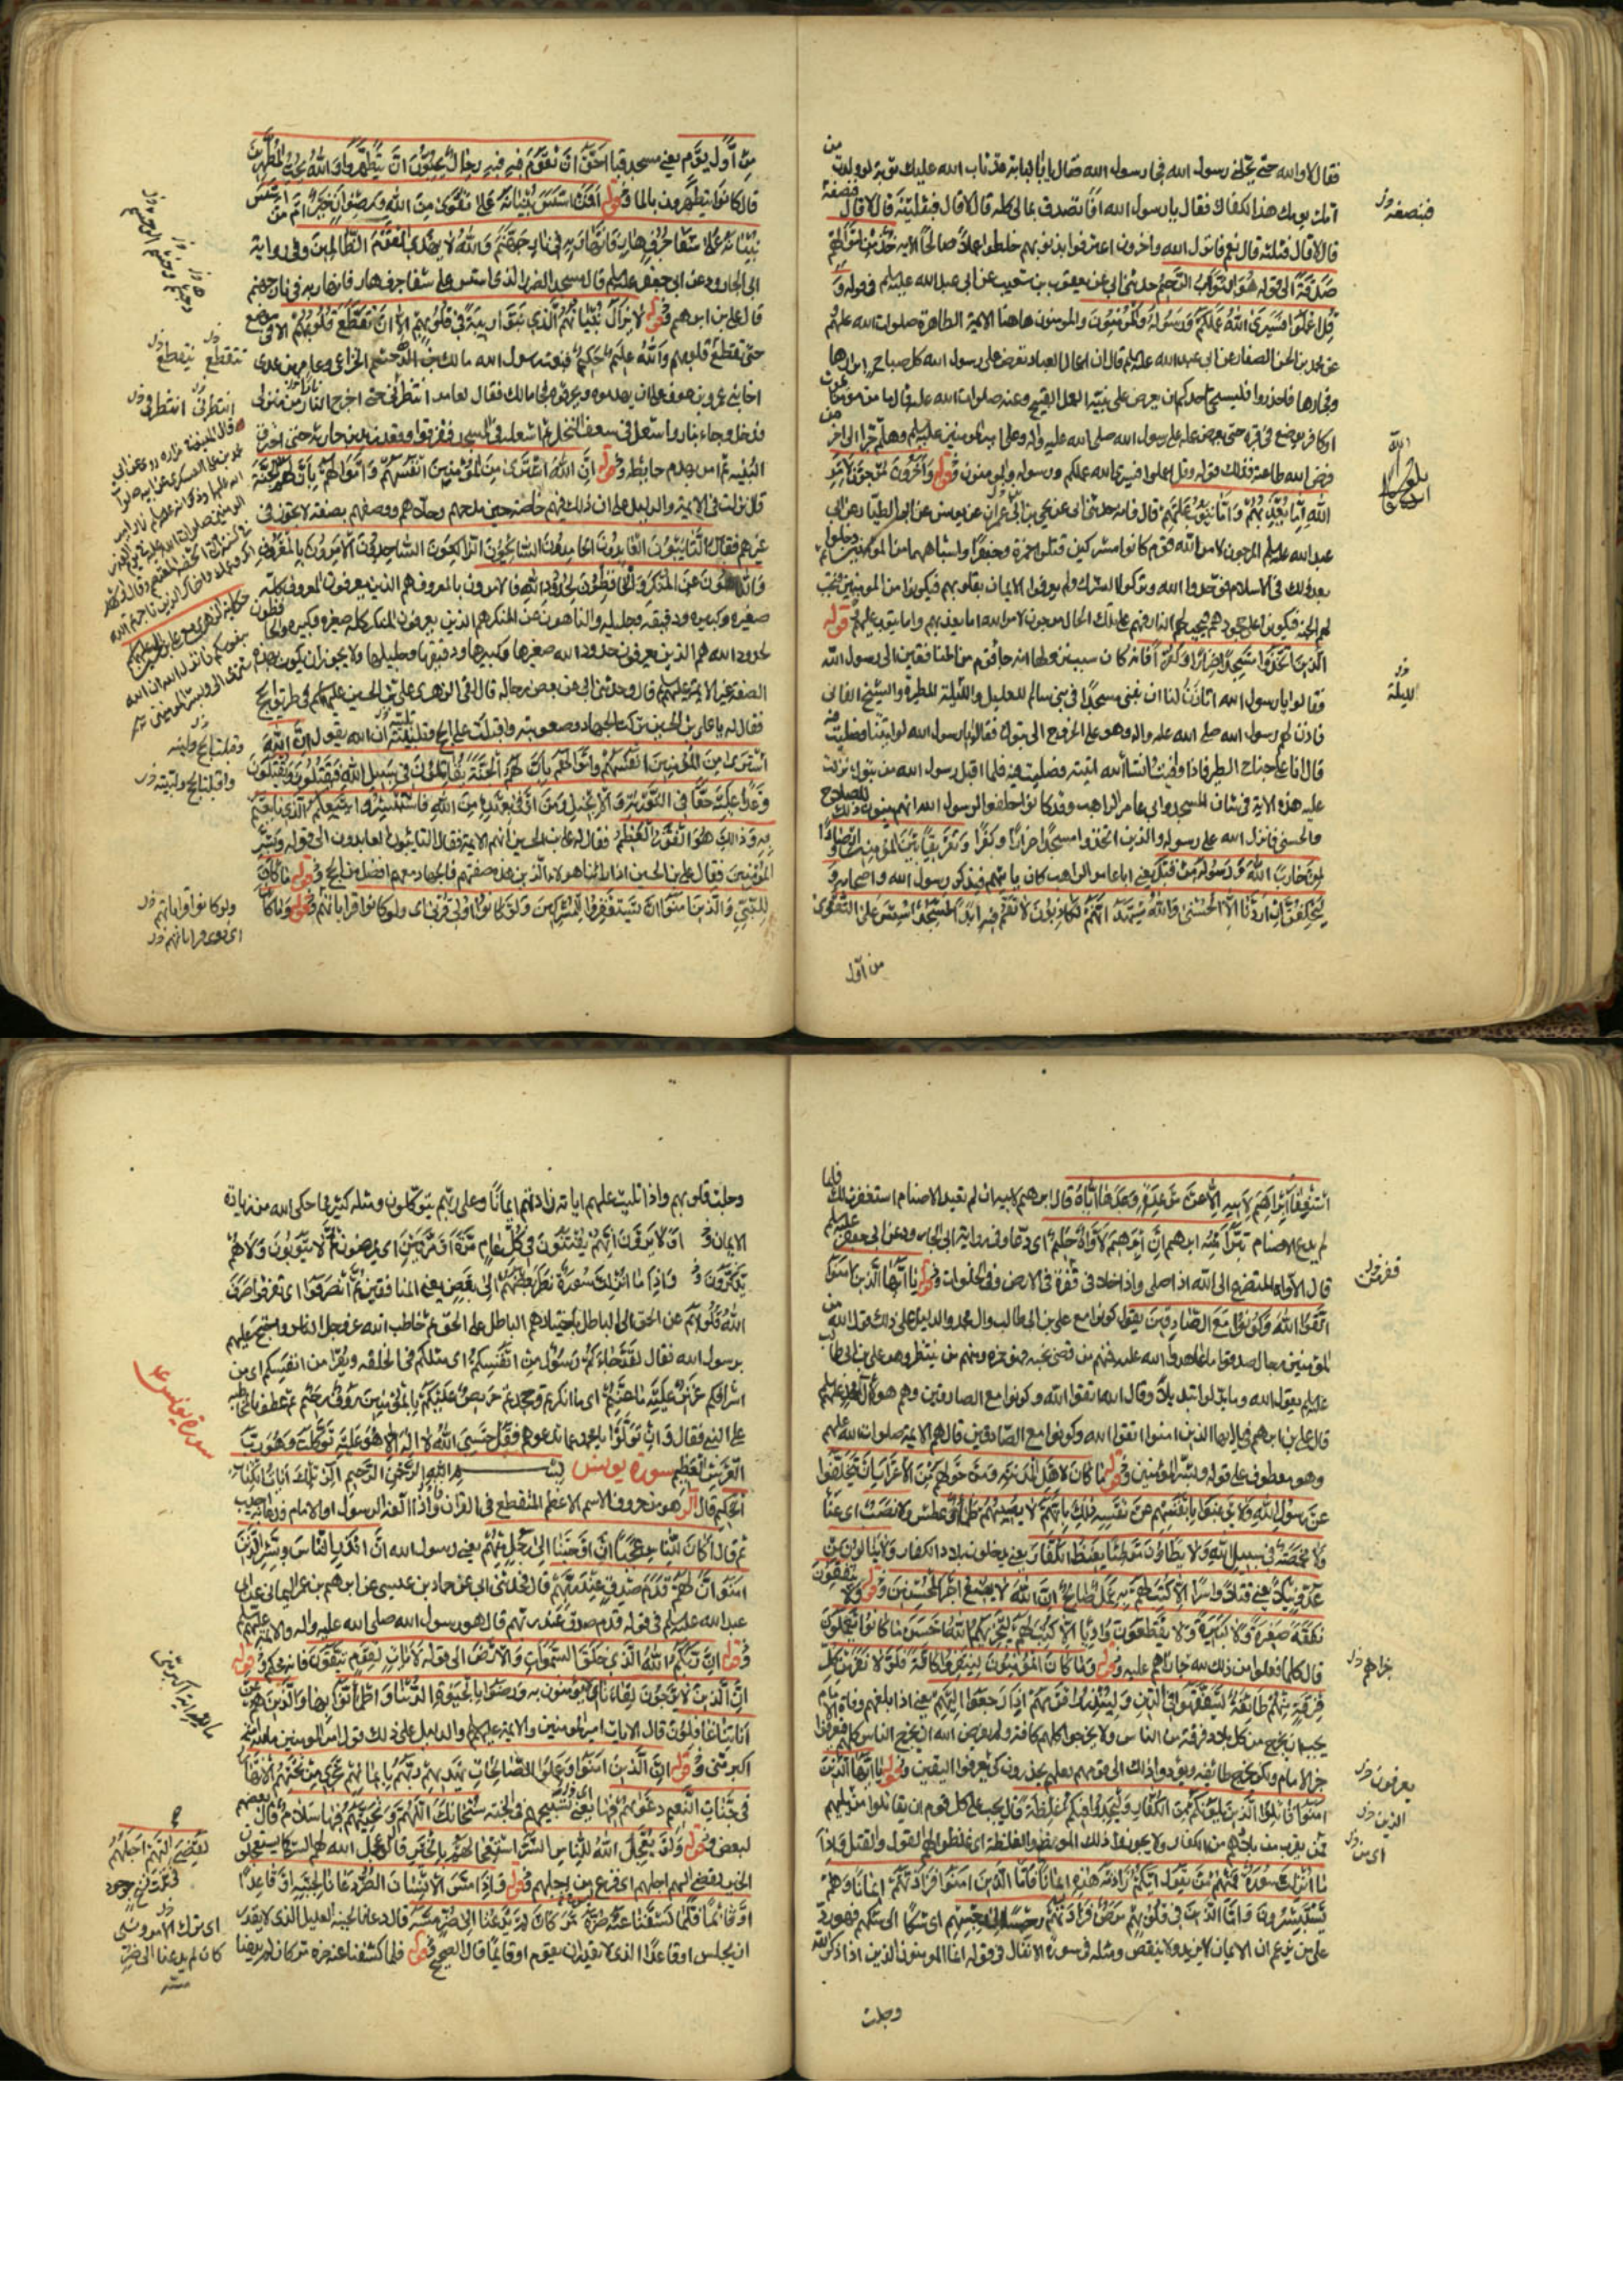 فقال لا والله حتى يحلني رسول الله فجاء رسول الله فقال يا با لبابة قد تاب الله عليك توبة لو ولدت من
امك يومك هذا لكفاك فقال يا رسول الله افاتصدق بمالي كله قال لا قال فبثلثيه قال لا قال فنصفه
قال لا قال فبثلثه قال نعم فانزل الله واخرون اعترفوا بذنوبهم خلطوا عملا صالحا الاية خذ من اموالهم
صدقة الى قوله هو التواب الرحيم حدثني ابي عن يعقوب بن شعيب عن ابي عبد الله عليه السلم في قوله و
قل اعملوا فسيرى الله عملكم ورسوله والمؤمنون والمومنون هاهنا الائمة الطاهرة صلوات الله عليهم
عن محمد بن الحسن الصفار عن ابي عبد الله عليه السلم قال ان اعمال العباد تعرض على رسول الله كل صباح ابرارها
وفجارها فاحذروا فليستحي احدكم ان يعرض على نبيه العمل القبيح وعنه صلوات الله عليه قال ما من مؤمن يموت
او كافر يوضع في قبره حتى يعرض عمله على رسول الله صلى الله عليه واله وعلى امير المؤمنين عليه السلم وهلم جرا الى اخر من
فرض الله طاعته فذلك قوله وقل اعملوا فسيرى الله عملكم ورسوله والمومنون قوله وآخرون مرجون لامر
الله اما يعذبهم واما يتوب عليهم قال فانه حدثني ابي عن يحيى بن ابي عمران عن يونس عن ابي الطيار عن ابي
عبد الله عليه السلم المرجون لامر الله قوم كانوا مشركين قتلوا حمزة وجعفرا واشباههما من المؤمنين ثم دخلوا
بعد ذلك في الاسلام فوحدوا الله وتركوا الشرك ولم يعرفوا الايمان بقلوبهم فيكونوا من المومنين فتجب
لهم الجنة
الذين اتخذوا مسجدا ضرارا وكفرا فانه كان سبب نزولها انه جاء قوم من المنافقين الى رسول الله
فقالوا يا رسول الله اتاذن لنا ان نبني مسجدا في بني سالم للعليل والليلة المطيرة والشيخ الفاني
فاذن لهم رسول الله صلى الله عليه واله وهو على الخروج الى تبوك فقالوا يا رسول الله لو اتيتنا فصليت فيه
قال انا على جناح السفر فاذا وافيت ان شاء الله اتيته فصليت فيه فلما اقبل رسول الله من تبوك نزلت
عليه هذه الاية في شان المسجد وابي عامر الراهب وقد كانوا حلفوا لرسول الله انهم يبنون ذلك للصلاح
والحسنى فانزل الله على رسوله والذين اتخذوا مسجدا ضرارا وكفرا وتفريقا بين المؤمنين وارصادا
لمن حارب الله ورسوله من قبل يعني ابا عامر الراهب كان ياتيهم فيذكر رسول الله واصحابه و
ليحلفن ان اردنا الا الحسنى والله يشهد انهم لكاذبون لا تقم فيه ابدا لمسجد اسس على التقوى
من اول
فبنصفه
بلغ
الليلة
من اول يوم يعني مسجد قبا احق ان تقوم فيه فيه رجال يحبون ان يتطهروا والله يحب المطهرين
قال كانوا يتطهرون بالماء قوله افمن اسس بنيانه على تقوى من الله ورضوان خير ام من اسس
بنيانه على شفا جرف هار فانهار به في نار جهنم والله لا يهدي القوم الظالمين وفي رواية
ابي الجارود عن ابي جعفر عليه السلم قال مسجد الضرار الذي اسس على شفا جرف هار فانهار به في نار جهنم
قال علي بن ابرهيم قوله لا يزال بنيانهم الذي بنوا ريبة في قلوبهم الا ان تقطع قلوبهم الا في موضع
حتى تقطع قلوبهم والله عليم حكيم فبعث رسول الله مالك بن الدخشم الخزاعي وعامر بن عدي
اخا بني عمرو بن عوف على ان يهدموه ويحرقوه فجاء مالك فقال لعامر انتظرني حتى اخرج النار من منزلي
فدخل وجاء بنار واشعل في سعف النخل ثم اشعله في المسجد فتفرقوا وقعد زيد بن حارثة حتى احرق
البنية ثم امر بهدم حايطه قوله ان الله اشترى من المؤمنين انفسهم واموالهم بان لهم الجنة
قال نزلت في الائمة والدليل على ان ذلك فيهم خاصة حين مدحهم وحلاهم ووصفهم بصفة لا تجوز في
غيرهم فقال التائبون العابدون الحامدون السائحون الراكعون الساجدون الآمرون بالمعروف
والناهون عن المنكر والحافظون لحدود الله فالآمرون بالمعروف هم الذين يعرفون المعروف كله
صغيره وكبيره ودقيقه وجليله والناهون عن المنكر هم الذين يعرفون المنكر كله صغيره وكبيره والحافظون
لحدود الله هم الذين يعرفون حدود الله صغيرها وكبيرها ودقيقها وجليلها ولا يجوز ان يكون بهذه
الصفة غير الائمة عليهم السلم قال وحدثني ابي عن بعض رجاله قال لقي الزهري علي بن الحسين عليهم السلم في طريق الحج
فقال له يا علي بن الحسين تركت الجهاد وصعوبته واقبلت على الحج ولينته ان الله يقول ان الله
اشترى من المؤمنين انفسهم واموالهم بان لهم الجنة يقاتلون في سبيل الله فيقتلون ويقتلون
وعدا عليه حقا في التوراة والانجيل ومن اوفى بعهده من الله فاستبشروا ببيعكم الذي بايعتم
به وذلك هو الفوز العظيم فقال له علي بن الحسين انهم الائمة فقال التائبون العابدون الى قوله وبشر
المؤمنين فقال علي بن الحسين اذا راينا هولاء الذين هذه صفتهم فالجهاد معهم افضل من الحج قوله ما كان
للنبي والذين آمنوا ان يستغفروا للمشركين ولو كانوا اولي قربى اي ولو كانوا قراباتهم قوله وما كان
تتقطع ينقطع
انتظرني
ولو كانوا قراباتهم
استغفار ابراهيم لابيه الا عن موعدة وعدها اياه قال ابرهيم لابيه ان لم تعبد الاصنام استغفرت لك فلما
لم يدع الاصنام تبرا منه ابرهيم ان ابرهيم لاواه حليم اي دعاء وفي رواية ابي الجارود عن ابي جعفر عليه السلم
قال الاواه المتضرع الى الله اذا صلى واذا خلا في قفرة في الارض وفي الخلوات قوله يا ايها الذين آمنوا
اتقوا الله وكونوا مع الصادقين يقول كونوا مع علي بن ابي طالب وال محمد والدليل على ذلك قول الله من
المؤمنين رجال صدقوا ما عاهدوا الله عليه فمنهم من قضى نحبه وهو حمزة ومنهم من ينتظر وهو علي بن ابي طالب
عليه السلم يقول الله وما بدلوا تبديلا وقال الله اتقوا الله وكونوا مع الصادقين وهم هو آل محمد عليهم السلم
قال علي بن ابرهيم في يا ايها الذين امنوا اتقوا الله وكونوا مع الصادقين قال هم الائمة صلوات الله عليهم
وهو معطوف على قوله وبشر المؤمنين قوله ما كان لاهل المدينة ومن حولهم من الاعراب ان يتخلفوا
عن رسول الله ولا يرغبوا بانفسهم عن نفسه ذلك بانهم لا يصيبهم ظمأ اي عطش ولا نصب اي عناء
ولا مخمصة في سبيل الله ولا يطاؤن موطئا يغيظ الكفار يعني يدخلون بلاد الكفار ولا ينالون من
عدو نيلا يعني قتلا واسرا الا كتب لهم به عمل صالح ان الله لا يضيع اجر المحسنين قوله ولا ينفقون
نفقة صغيرة ولا كبيرة ولا يقطعون واديا الا كتب لهم ليجزيهم الله احسن ما كانوا يعملون
قال كلما فعلوا من ذلك لله جازاهم عليه قوله وما كان المؤمنون لينفروا كافة فلولا نفر من كل
فرقة منهم طائفة ليتفقهوا في الدين ولينذروا قومهم اذا رجعوا اليهم يعني اذا بلغهم وفاة الامام
يجب ان يخرج من كل بلاد فرقة من الناس ولا يخرجوا كلهم كافة ولم يفرض الله ان يخرج الناس كلهم فيعرفوا
خبر الامام ولكن يخرج طائفة ويؤدوا ذلك الى قومهم لعلهم يحذرون كي يعرفوا اليقين قوله يا ايها الذين
آمنوا قاتلوا الذين يلونكم من الكفار وليجدوا فيكم غلظة قال يجب على كل قوم ان يقاتلوا من يليهم
ممن يقرب من بلادهم من الكفار ولا يجوزوا ذلك الموضع والغلظة اي غلظوا لهم القول والقتل واذا
ما انزلت سورة فمنهم من يقول ايكم زادته هذه ايمانا فاما الذين آمنوا فزادتهم ايمانا وهم
يستبشرون واما الذين في قلوبهم مرض فزادتهم رجسا الى رجسهم اي شكا الى شكهم فهو رد
على من يزعم ان الايمان لا يزيد ولا ينقص ومثله في سورة الانفال في قوله انما المومنون الذين اذا ذكر الله
وجلت
يعرفون
الذين
اي من
وجلت قلوبهم واذا تليت عليهم اياته زادتهم ايمانا وعلى ربهم يتوكلون ومثله كثير مما حكى الله من زيادة
الايمان و اولا يرون انهم يفتنون في كل عام مرة او مرتين اي يمرضون ثم لا يتوبون ولا هم
يذكرون و واذا ما انزلت سورة نظر بعضهم الى بعض يعني المنافقين ثم انصرفوا اي تفرقوا صرف
الله قلوبهم عن الحق الى الباطل باختيارهم الباطل على الحق ثم خاطب الله عز وجل الناس واحتج عليهم
برسول الله فقال لقد جاءكم رسول من انفسكم اي مثلكم في الخلقة ويقرا من انفسكم اي من
اشرفكم عزيز عليه ما عنتم اي ما انكرتم وجحدتم حريص عليكم بالمؤمنين رؤف رحيم ثم عطف بالمخاطبة
على النبي فقال فان تولوا يا محمد عما تدعوهم فقل حسبي الله لا اله الا هو عليه توكلت وهو رب
العرش العظيم سورة يونس بسم الله الرحمن الرحيم الر تلك آيات الكتاب
الحكيم قال الر هو من حروف الاسم الاعظم المنقطع في القرآن فاذا الفه الرسول او الامام فدعا به اجيب
ثم قال اكان للناس عجبا ان اوحينا الى رجل منهم يعني رسول الله ان انذر الناس وبشر الذين
آمنوا ان لهم قدم صدق عند ربهم قال فحدثني ابي عن حماد بن عيسى عن ابرهيم بن عمر اليماني عن ابي
عبد الله عليه السلم في قوله قدم صدق عند ربهم قال هو رسول الله صلى الله عليه واله والائمة عليهم السلم
قوله ان ربكم الله الذي خلق السموات والارض الى قوله لآيات لقوم يتقون فانه محكم قوله
ان الذين لا يرجون لقاءنا اي لا يؤمنون به ورضوا بالحيوة الدنيا واطمأنوا بها والذين هم عن
آياتنا غافلون قال الايات امير المومنين والائمة عليهم السلم والدليل على ذلك قول امير المومنين ما لله آية
اكبر مني قوله ان الذين آمنوا وعملوا الصالحات يهديهم ربهم بايمانهم تجري من تحتهم الانهار
في جنات النعيم دعواهم فيها يعني تسبيحهم في الجنة سبحانك اللهم وتحيتهم فيها سلام قال بعضهم
لبعض قوله ولو يعجل الله للناس الشر استعجالهم بالخير قال لو عجل الله لهم الشر كما يستعجلون
الخير لقضي اليهم اجلهم اي فرغ من اجلهم قوله واذا مس الانسان الضر دعانا لجنبه او قاعدا
او قائما فلما كشفنا عنه ضره مر كان لم يدعنا الى ضر مسه قال دعانا لجنبه العليل الذي لا يقدر
ان يجلس او قاعدا الذي لا يقدر ان يقوم او قايما قال الصحيح قوله فلما كشفنا عنه ضره مر كان لم يدعنا
سورة يونس
ما لله آية اكبر مني
لقضي اليهم اجلهم
كان لم يدعنا الى ضر
مسه